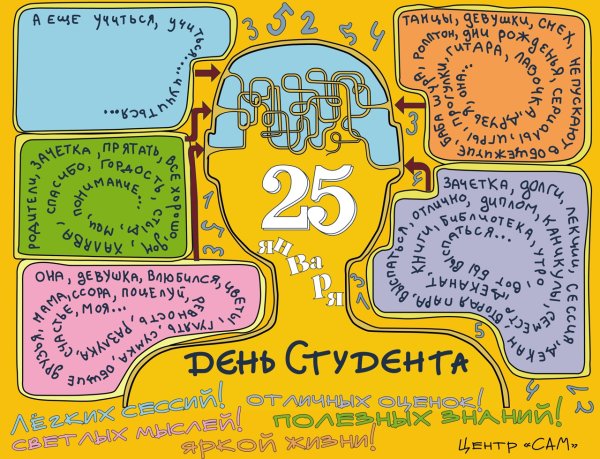 А ЕЩЕ УЧИТЬСЯ, УЧИТЬСЯ... И УЧИТЬСЯ...
3 5 2 5 4
ТАНЦЫ, ДЕВУШКИ, СМЕХ, НЕ ПУСКАЮТ В ОБЩЕЖИТИЕ, БАБА ШУРА, РОЛЛТОН, ДНИ РОЖДЕНЬЯ, СЕРИАЛЫ, ИГРЫ, ПРОГУЛКИ, ГИТАРА, ЛАВОЧКА, ДРУЗЬЯ, Я, ОНА...
3
РОДИТЕЛИ, ЗАЧЕТКА, ПРЯТАТЬ, ВСЕ ХОРОШО, ДОМ, ХАЛЯВА, СПАСИБО, ГОРДОСТЬ, СТЫД, МЫ, ПОНИМАНИЕ...
25
января
ЗАЧЕТКА, ДОЛГИ, ЛЕКЦИИ, СЕССИЯ, ДЕКАН, СЕМЕСТР, ВТОРАЯ ПАРА, ВЫСПАТЬСЯ, ОТЛИЧНО, ДИПЛОМ, КАНИКУЛЫ, ДЕКАНАТ, КНИГИ, БИБЛИОТЕКА, УТРО, ВОТ БЫ ВЫСПАТЬСЯ...
ОНА, ДЕВУШКА, ВЛЮБИЛСЯ, ЦВЕТЫ, ГУЛЯТЬ, СУМКА, ОБЩИЕ ДРУЗЬЯ, МАМА, ССОРА, ПОЦЕЛУЙ, РЕВНОСТЬ, РАЗЛУКА, СЧАСТЬЕ, МОЯ...
ДЕНЬ СТУДЕНТА
ЛЁГКИХ СЕССИЙ!
ОТЛИЧНЫХ ОЦЕНОК!
СВЕТЛЫХ МЫСЛЕЙ!
ПОЛЕЗНЫХ ЗНАНИЙ!
ЯРКОЙ ЖИЗНИ!
ЦЕНТР «САМ»